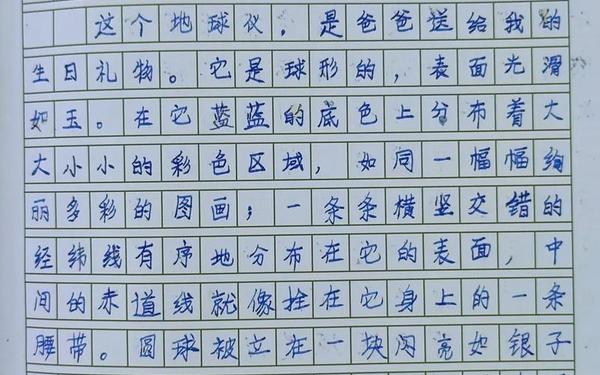 这个地球仪，是爸爸送给我的
生日礼物。它是球形的，表面光滑
如玉。在它蓝蓝的底色上分布着大
大小小的彩色区域，如同一幅幅绚
丽多彩的图画；一条条横竖交错的
经纬线有序地分布在它的表面，中
间的赤道线就像拴在它身上的一条
腰带。圆球被立在一块闪亮如银子